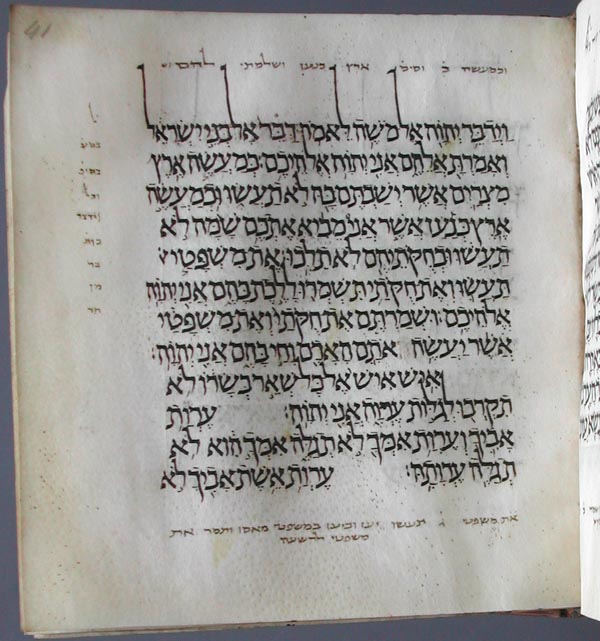 41
וכמעשה ב וסימ ארץ כנען ושלמתי להם
וידבר יהוה אל משה לאמר דבר אל בני ישראל
ואמרת אלהם אני יהוה אלהיכם׃ כמעשה ארץ
מצרים אשר ישבתם בה לא תעשו וכמעשה
ארץ כנען אשר אני מביא אתכם שמה לא
תעשו ובחקתיהם לא תלכו׃ את משפטי
תעשו ואת חקתי תשמרו ללכת בהם אני יהוה
אלהיכם׃ ושמרתם את חקתי ואת משפטי
אשר יעשה אתם האדם וחי בהם אני יהוה׃
איש איש אל כל שאר בשרו לא
תקרבו לגלות ערוה אני יהוה׃ ערות
אביך וערות אמך לא תגלה אמך הוא לא
תגלה ערותה׃ ערות אשת אביך לא
את משפטי ג תעשו יען וביען במשפטי מאסו ותמר את
משפטי לרשעה